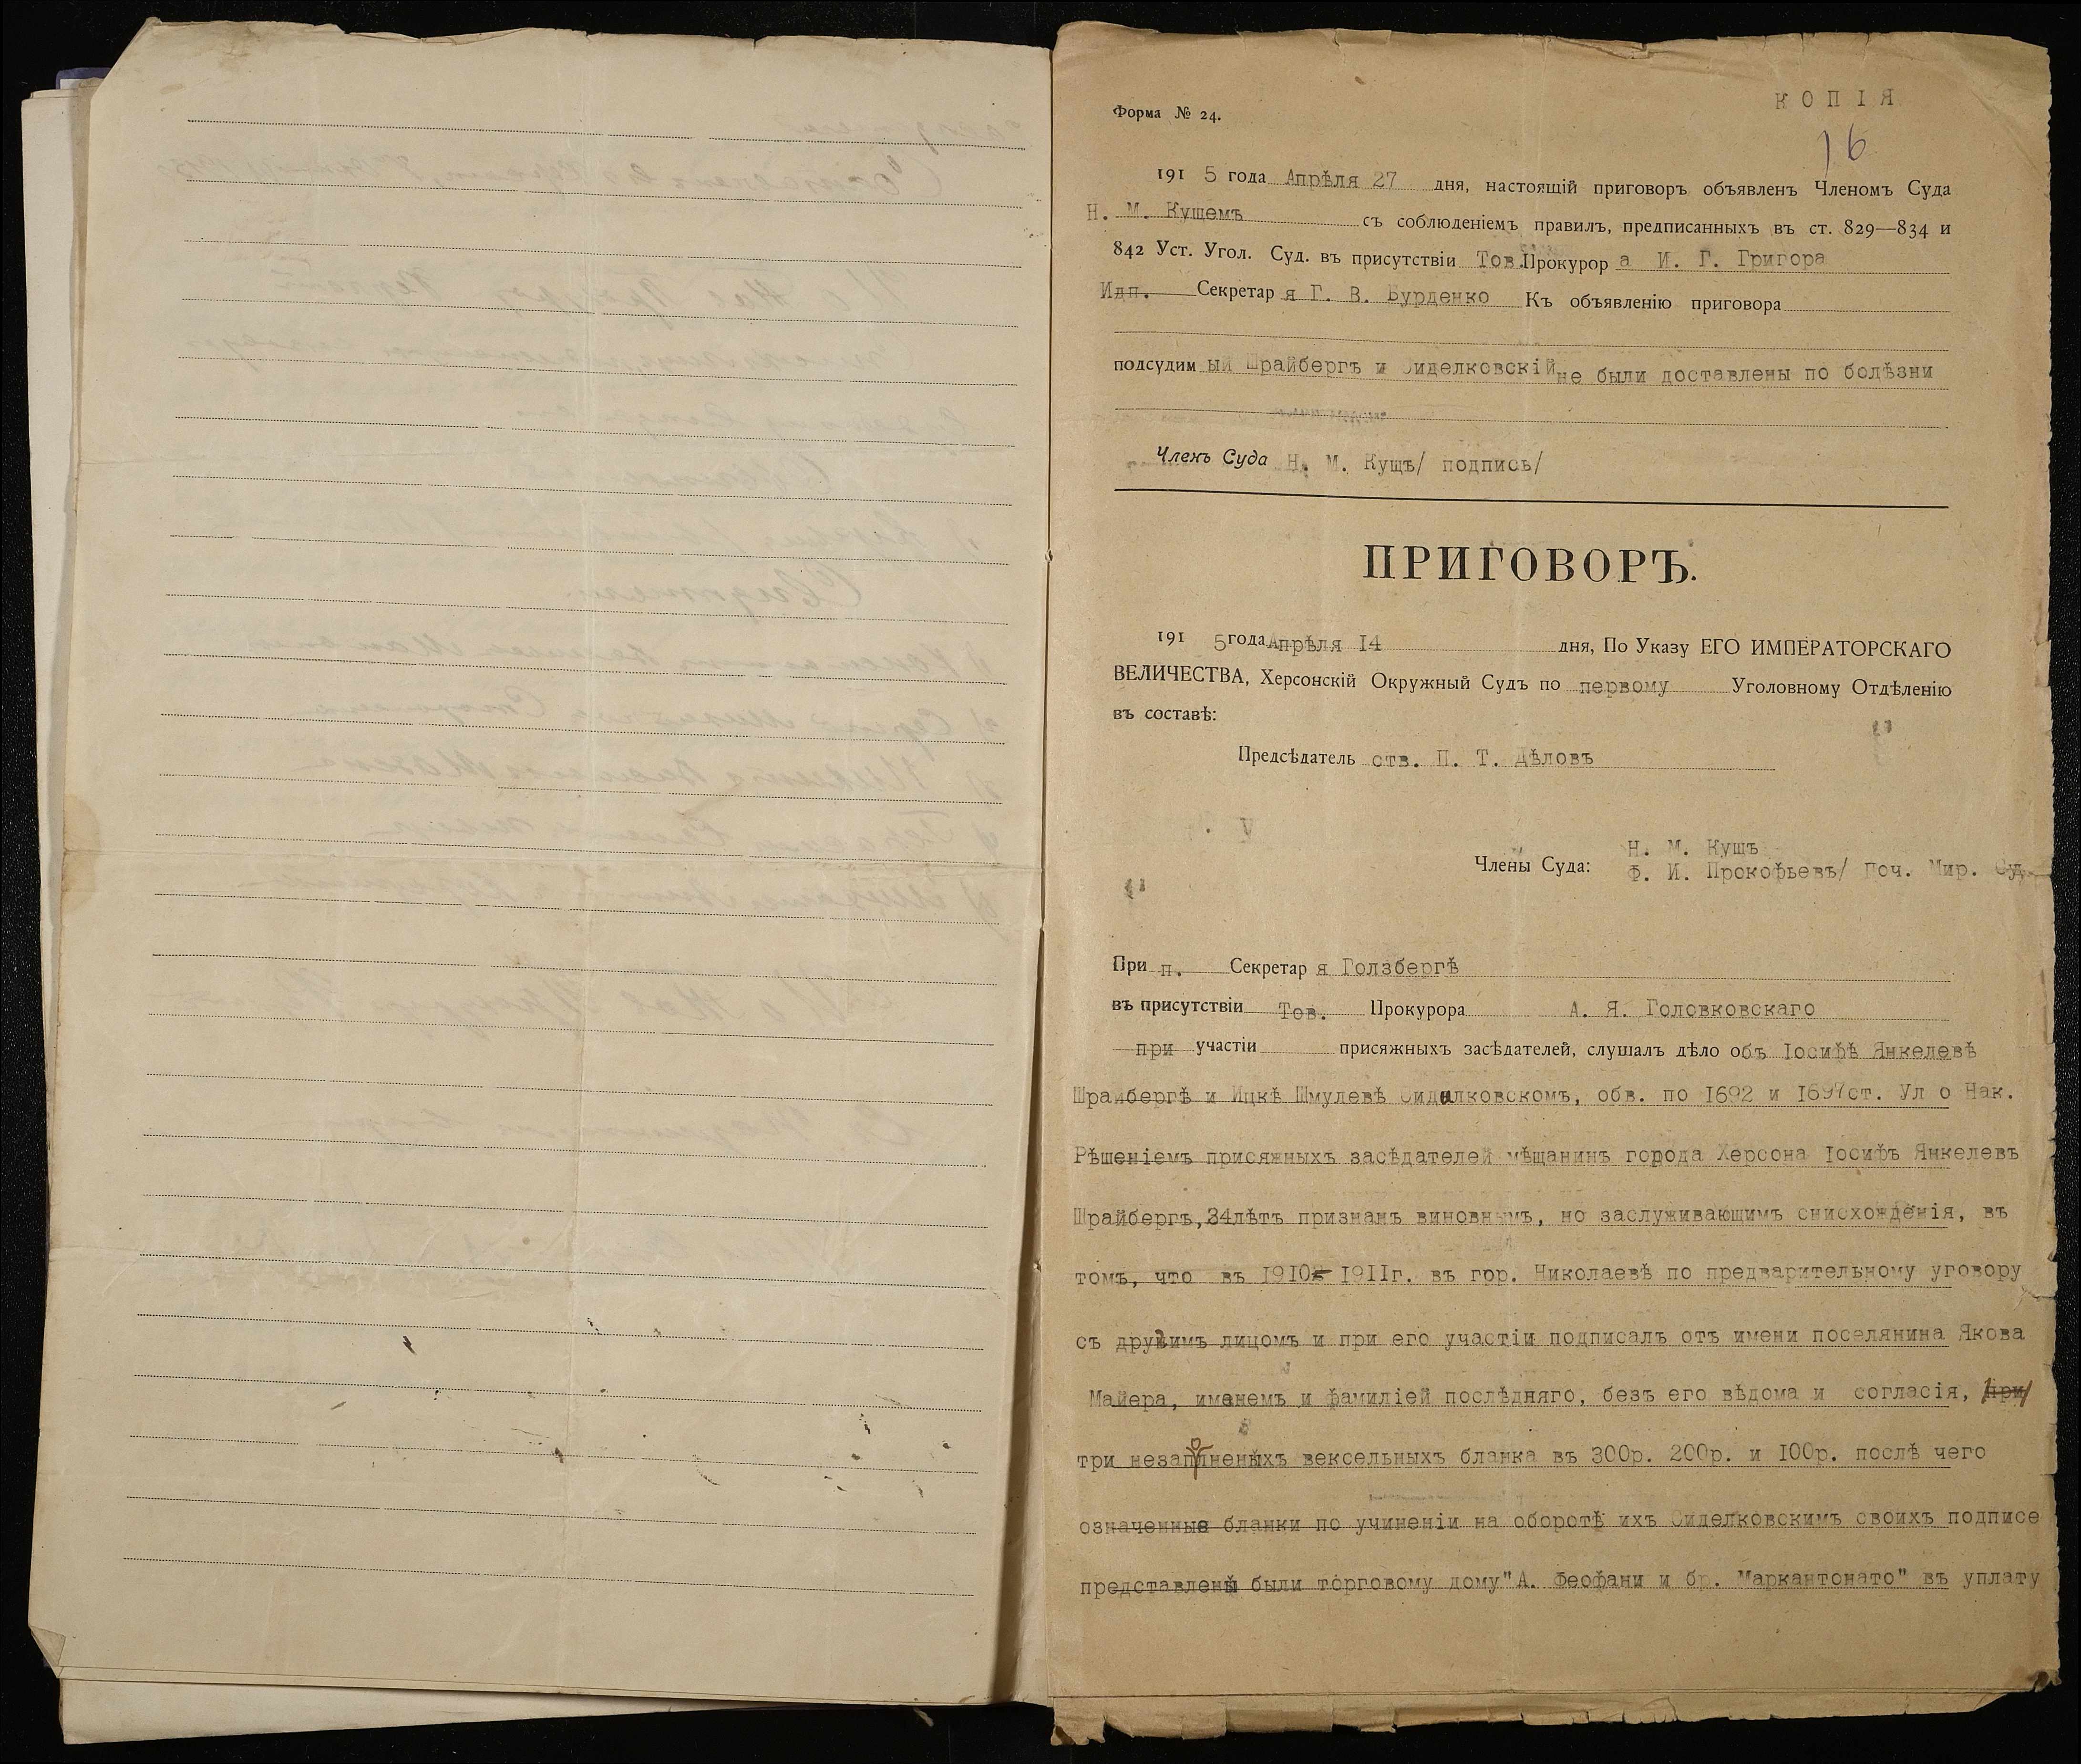 КОПІЯ
Форма № 24.
16
191 5 года Апрѣля 27 дня, настоящій приговоръ объявленъ Членомъ Суда
Н. М. Кущемъ съ соблюденіемъ правилъ, предписанныхъ въ ст. 829—834 и
842 Уст. Угол. Суд. въ присутствіи Тов. Прокурор а И. Г. Григора
Идп. Секретар я Г. В. Бурденко Къ объявленію приговора
подсудим ый Шрайбергъ и Сиделковскій не были доставлены по болѣзни
Членъ Суда Н. М. Кущъ/ подпись/
ПРИГОВОРЪ.
191 5 года Апрѣля 14 дня, По Указу ЕГО ИМПЕРАТОРСКАГО
ВЕЛИЧЕСТВА, Херсонскій Окружный Судъ по первому Уголовному Отдѣленію
въ составѣ:
Предсѣдатель ств. П. Т. Дѣловъ
Н. М. Кущъ
Члены Суда: Ф. И. Прокофьевъ/ Поч. Мир. Суд.
При п. Секретар я Голзбергѣ
въ присутствіи Тов. Прокурора А. Я. Головковскаго
при участіи присяжныхъ засѣдателей, слушалъ дѣло объ Іосифѣ Янкелевѣ
Шрайбергѣ и Ицкѣ Шмулевѣ Сидилковскомъ, обв. по 1692 и 1697 ст. Ул о Нак.
Рѣшеніемъ присяжныхъ засѣдателей мѣщанинъ города Херсона Іосифъ Янкелевъ
Шрайбергъ, 34лѣтъ признанъ виновнымъ, но заслуживающимъ снисхожденія, въ
томъ, что въ 1910-1911г. въ гор. Николаевѣ по предварительному уговору
съ другимъ лицомъ и при его участіи подписалъ отъ имени поселянина Якова
Майера, именемъ и фамиліей послѣдняго, безъ его вѣдома и согласія, при
три незаполненыхъ вексельныхъ бланка въ 300р. 200р. и 100р. послѣ чего
означенные бланки по учиненіи на оборотѣ ихъ Сиделковскимъ своихъ подписе
представлены были торговому дому "А. Феофани и бр. Маркантонато" въ уплату